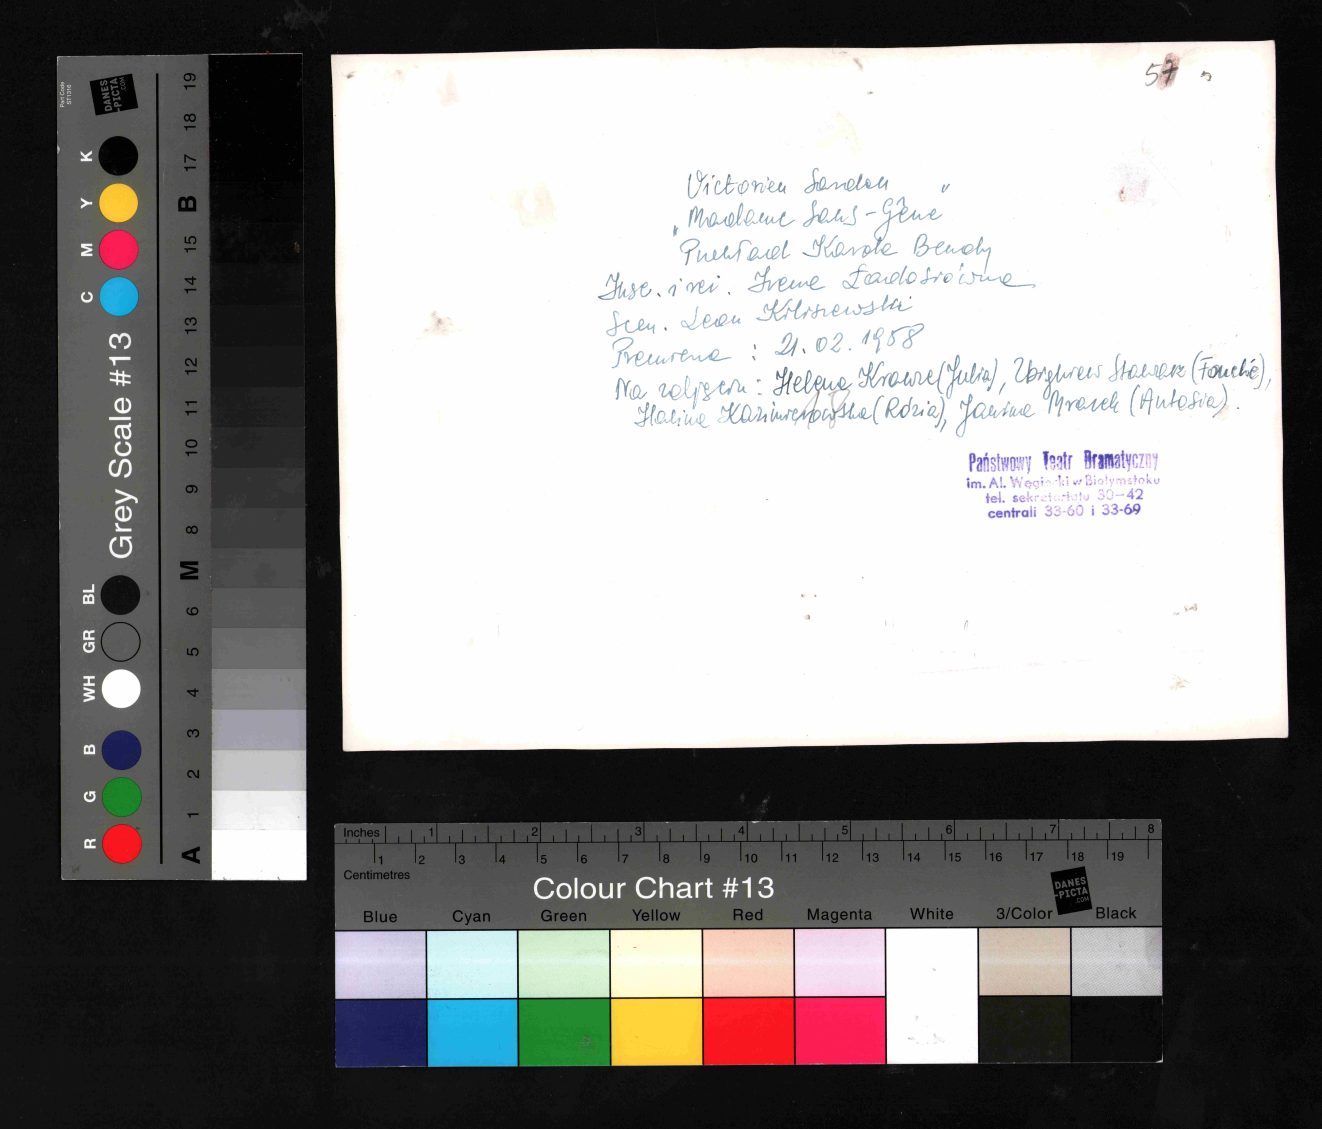 57
Victorien Sardou
„Madame Sans-Gêne"
Przekład Karola Bendy
Insc. i reż. Irena Ładosiówna
Scen. Leon
Premiera : 21.02.1958
Na zdjęciu: Helena Krauze (Julia), Zbigniew Stawarz (Fouché),
Halina Kazimierowska (Rózia), Janina Mrazek (Antosia).
Państwowy Teatr Dramatyczny
im. Al. Węgierki w Białymstoku
tel. sekretariatu 30-42
centrali 33-60 i 33-69
Part Code
ST1316
DANES
-PICTA
.COM
Grey Scale #13
K
Y
M
C
BL
GR
WH
B
G
R
19
18
17
B
15
14
13
12
11
10
9
8
M
6
5
4
3
2
1
A
Inches 1 2 3 4 5 6 7 8
1 2 3 4 5 6 7 8 9 10 11 12 13 14 15 16 17 18 19
Centimetres
Colour Chart #13
DANES
-PICTA
.COM
Blue Cyan Green Yellow Red Magenta White 3/Color Black